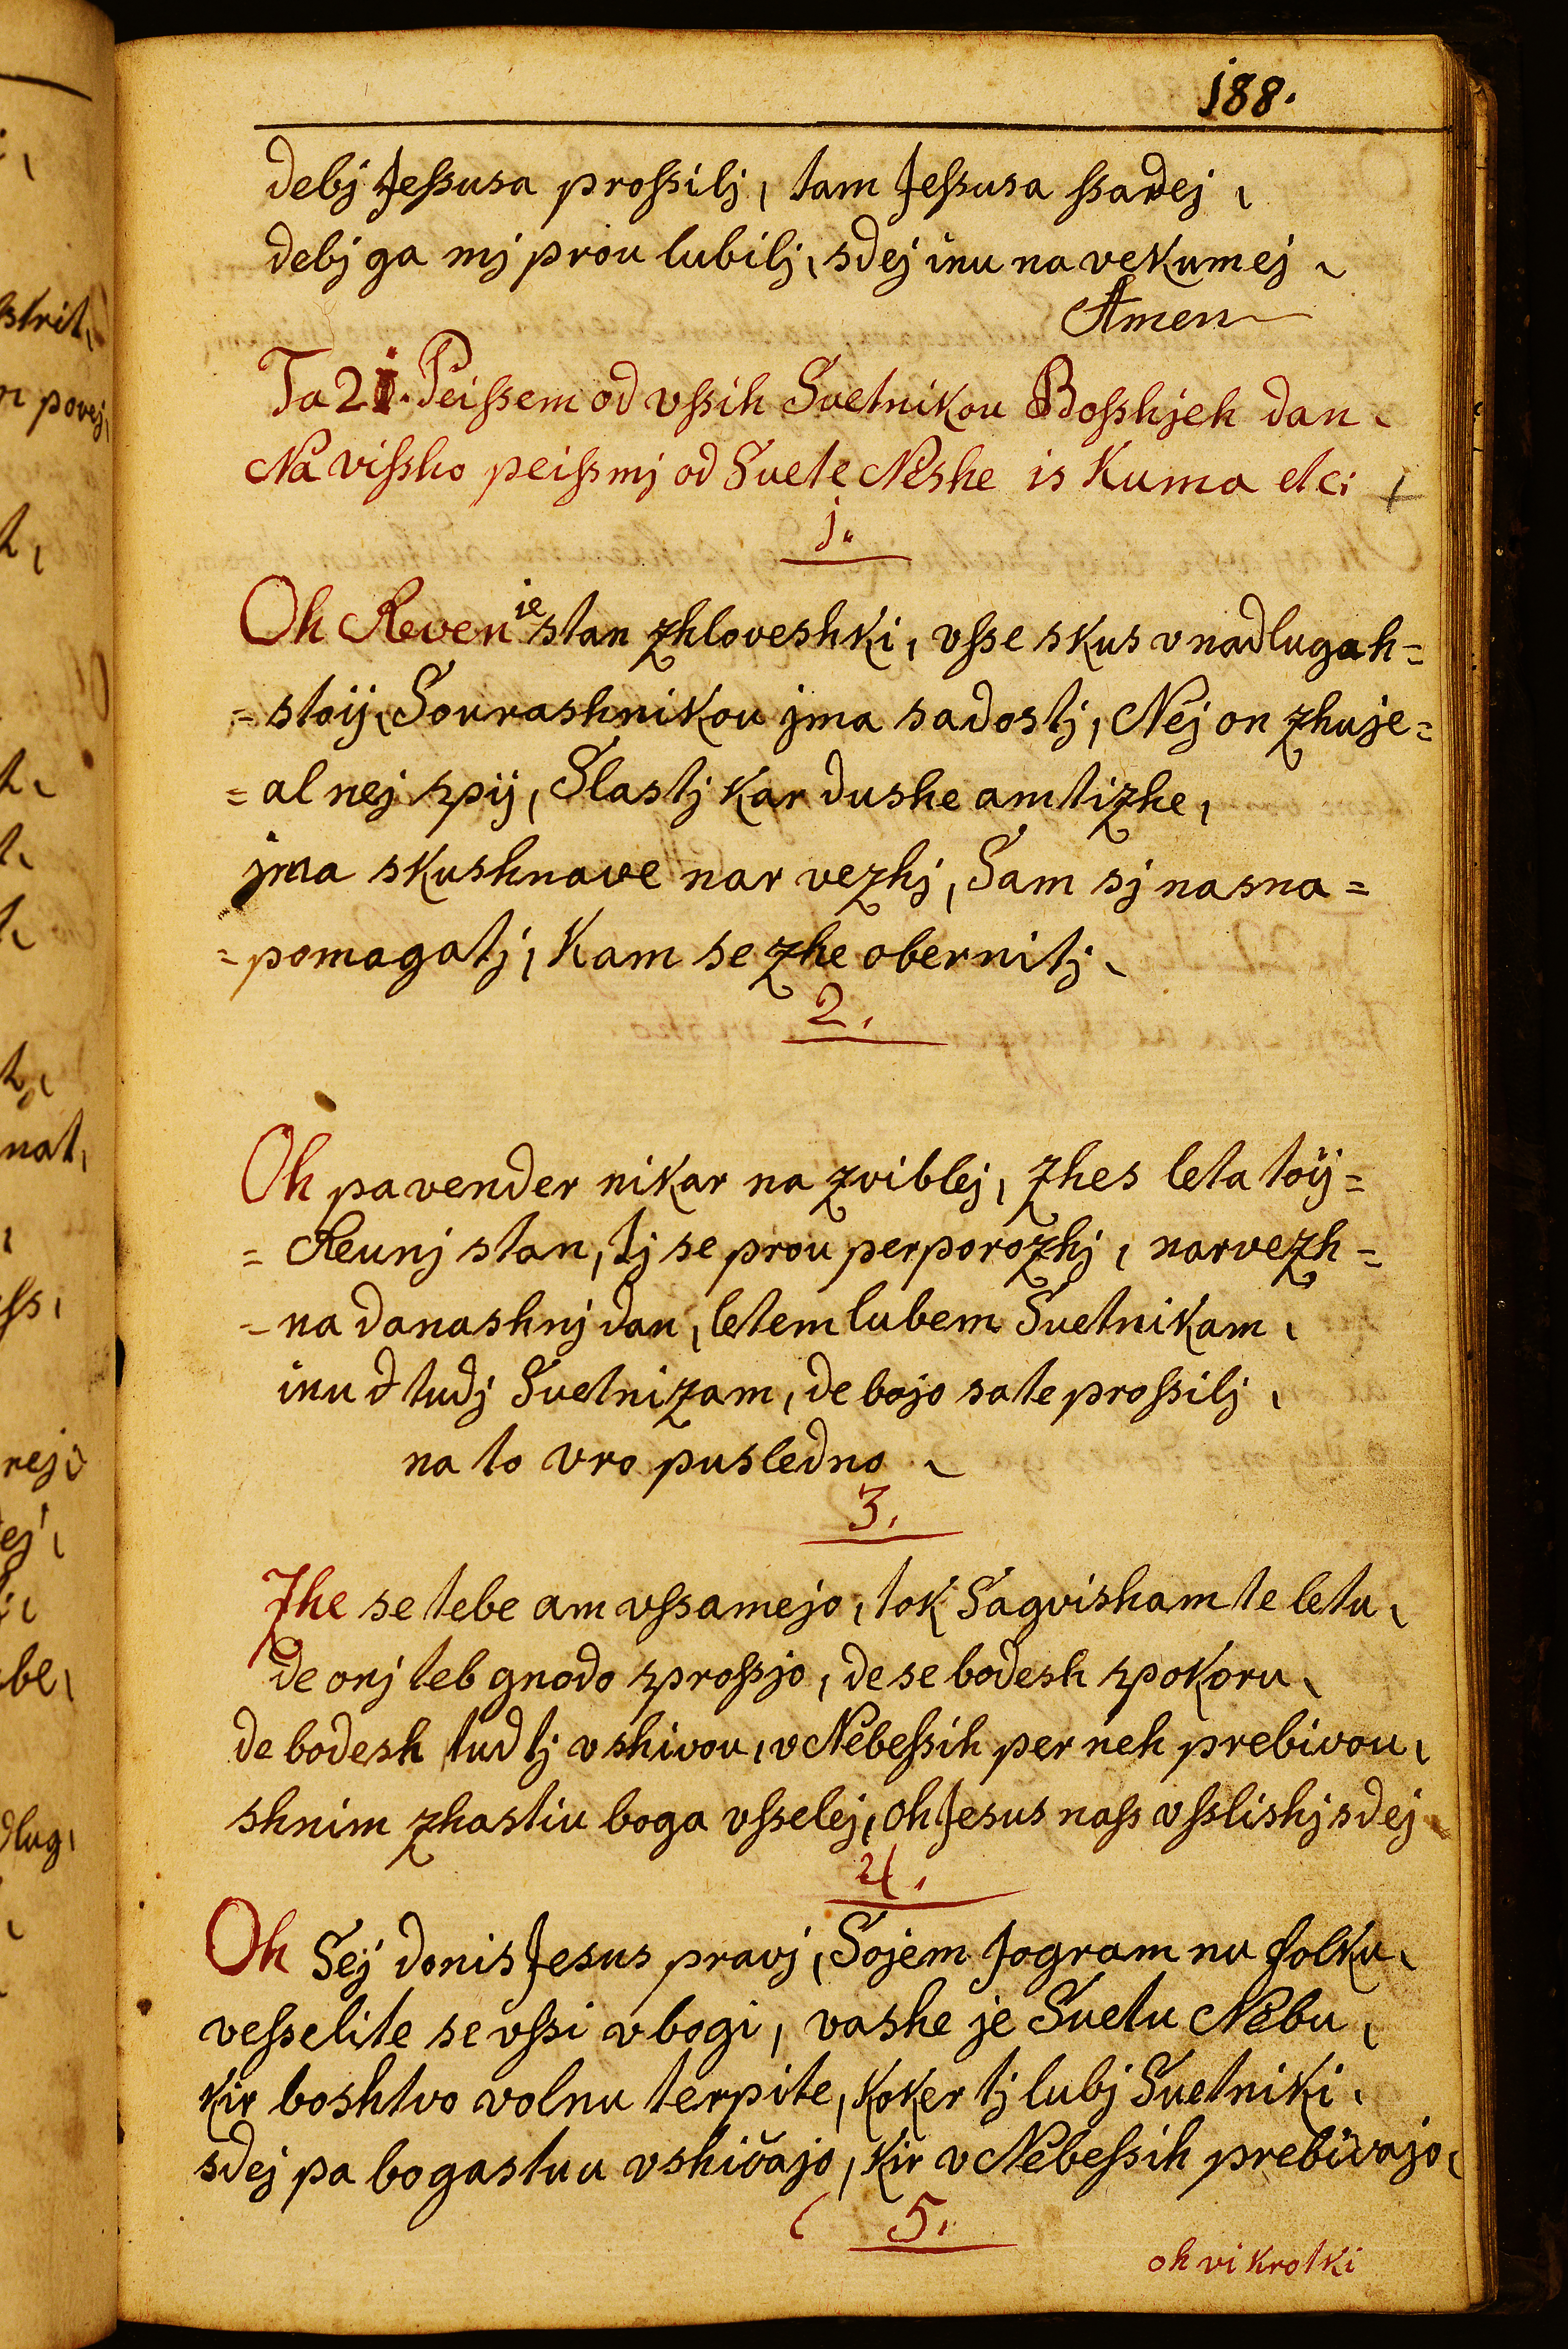 188.
debj Jeſsusa proſsilj, tam Jeſsusa ſsadej,
debj ga mj prou lubilj, sdej inu na vekumej,
Amen
Ta 21. Peiſsem od vſsih Svetnikou Boſshjeh dan,
Na viſsho peiſsmj od Svete Neshe is Kuma etc:
1.
Oh Reven ie stan zhloveshki, vſse skus v nadlugah=
=stoij, Sourashnikou jma sadostj, Nej on zhuje=
=al nej spij, Slastj kar dushe am tizhe,
jma skushnave nar vezhj, Sam sj na sna=
=pomagatj, kam se zhe obernitj,
2.
Oh pa vender nikar na zviblej, zhes leta toij=
=Reunj stan, tj se prou perporozhj, narvezh=
=na danashnj dan, letem lubem Svetnikam,
inu d tudj Svetnizam, de bojo sa te proſsilj,
na to vro pusledno,
3.
Zhe se tebe am vſsamejo, tok Sagvisham te letu,
de onj teb gnado sproſsjo, de se bodesh spokoru,
de bodesh tud tj vshivou, v Nebeſsih per neh prebivou,
shnim zhastiu boga vſselej, oh Jesus naſs vſslishj sdej
4.
Oh Sej donis Jesus pravj, Sojem Jogram nu folku,
veſselite se vſsi vbogi, vashe je Svetu Nebu,
kir boshtvo volnu terpite, koker tj lubj Svetniki,
sdej pa bogastuu vshivajo, kir v Nebeſsih prebivajo,
5.
oh vi krotki